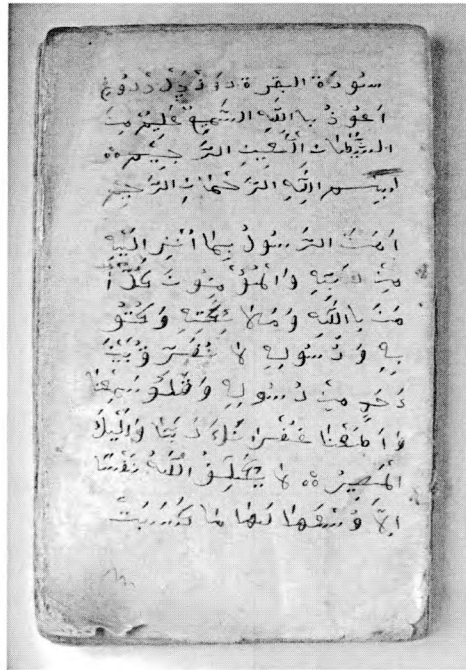 سُورَة البقرة
اَعُوْذُ بِا اللَّهِ السَّمِيعُ عَلِيمُ مِنَ
الشَّيْطَانِ الَّعِينِ الرَّجِيمِ
ابِسم اللَّهِ الرَّحْمَانِ الرَّحِيمِ
اَمَنَ الرَّسُولُ بِمَا اُنْزِ الَيْهِ
مِنْ رَبِّهِ وَالْمُؤْمِنُونَ كُلٌّ أَ
مَنَ بِااللَّهِ وَمَلائِكَتِهِ وَكُتُو
بِهِ وَرَسُولِهِ لا نُفَرِّقُ بَيْنَ
اَحَدٍ مِنْ رُسُولِهِ وَقَلُو سَمِعْنَا
وَاَطَعْنَا غُفْرَانَكَ رَبَنَا وَاِلَيْكَ
الْمَصِيرُ لا يُكَلِّفُ اللَّهُ نَفْسًا
اِلاَّ وُسْعَهَا لَهَا مَا كَسَبَتْ